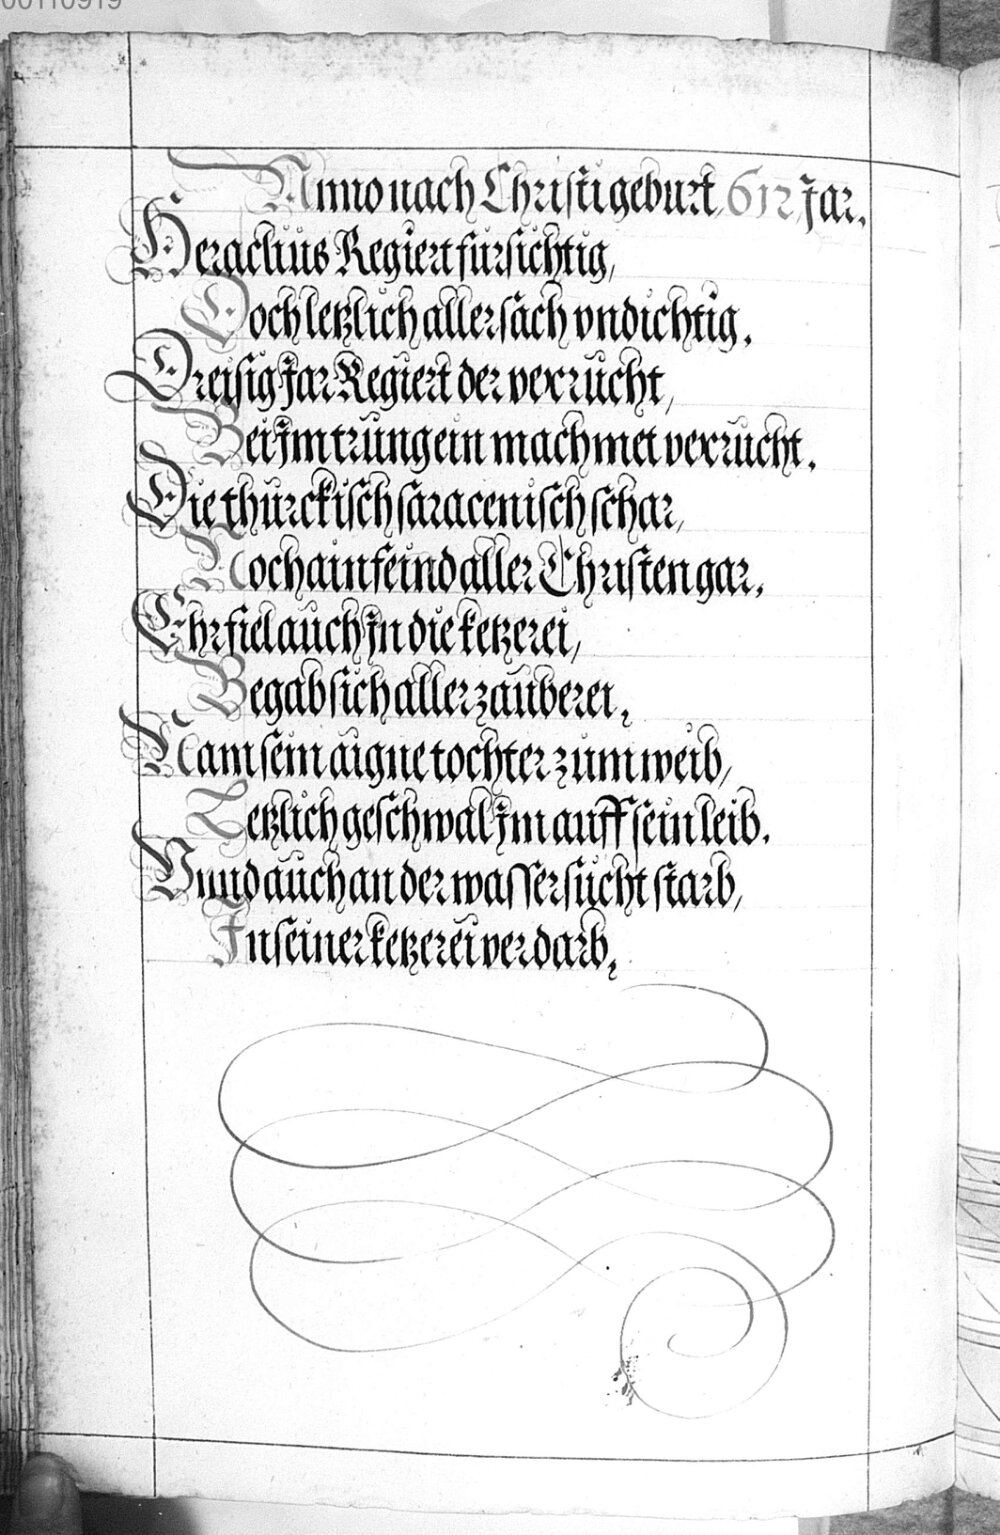 00110919
Anno nach Christi geburt, 612, Jar.
Heraclius Regiert fürsichtig,
Doch letzlich aller sach vndichtig.
Dreisig Jar Regiert der verrücht,
Bei Jm trüng ein machmet verrücht.
Die thürckisch saracenisch schar,
Noch ain feind aller Christen gar.
Ehr fiel auch Jn die ketzerei,
Begab sich aller zauberei,
Nam sein aigne tochter zum weib,
Letzlich geschwal Jm auff sein leib.
Vnnd auch an der wassersücht starb,
In seiner ketzerei verdarb,